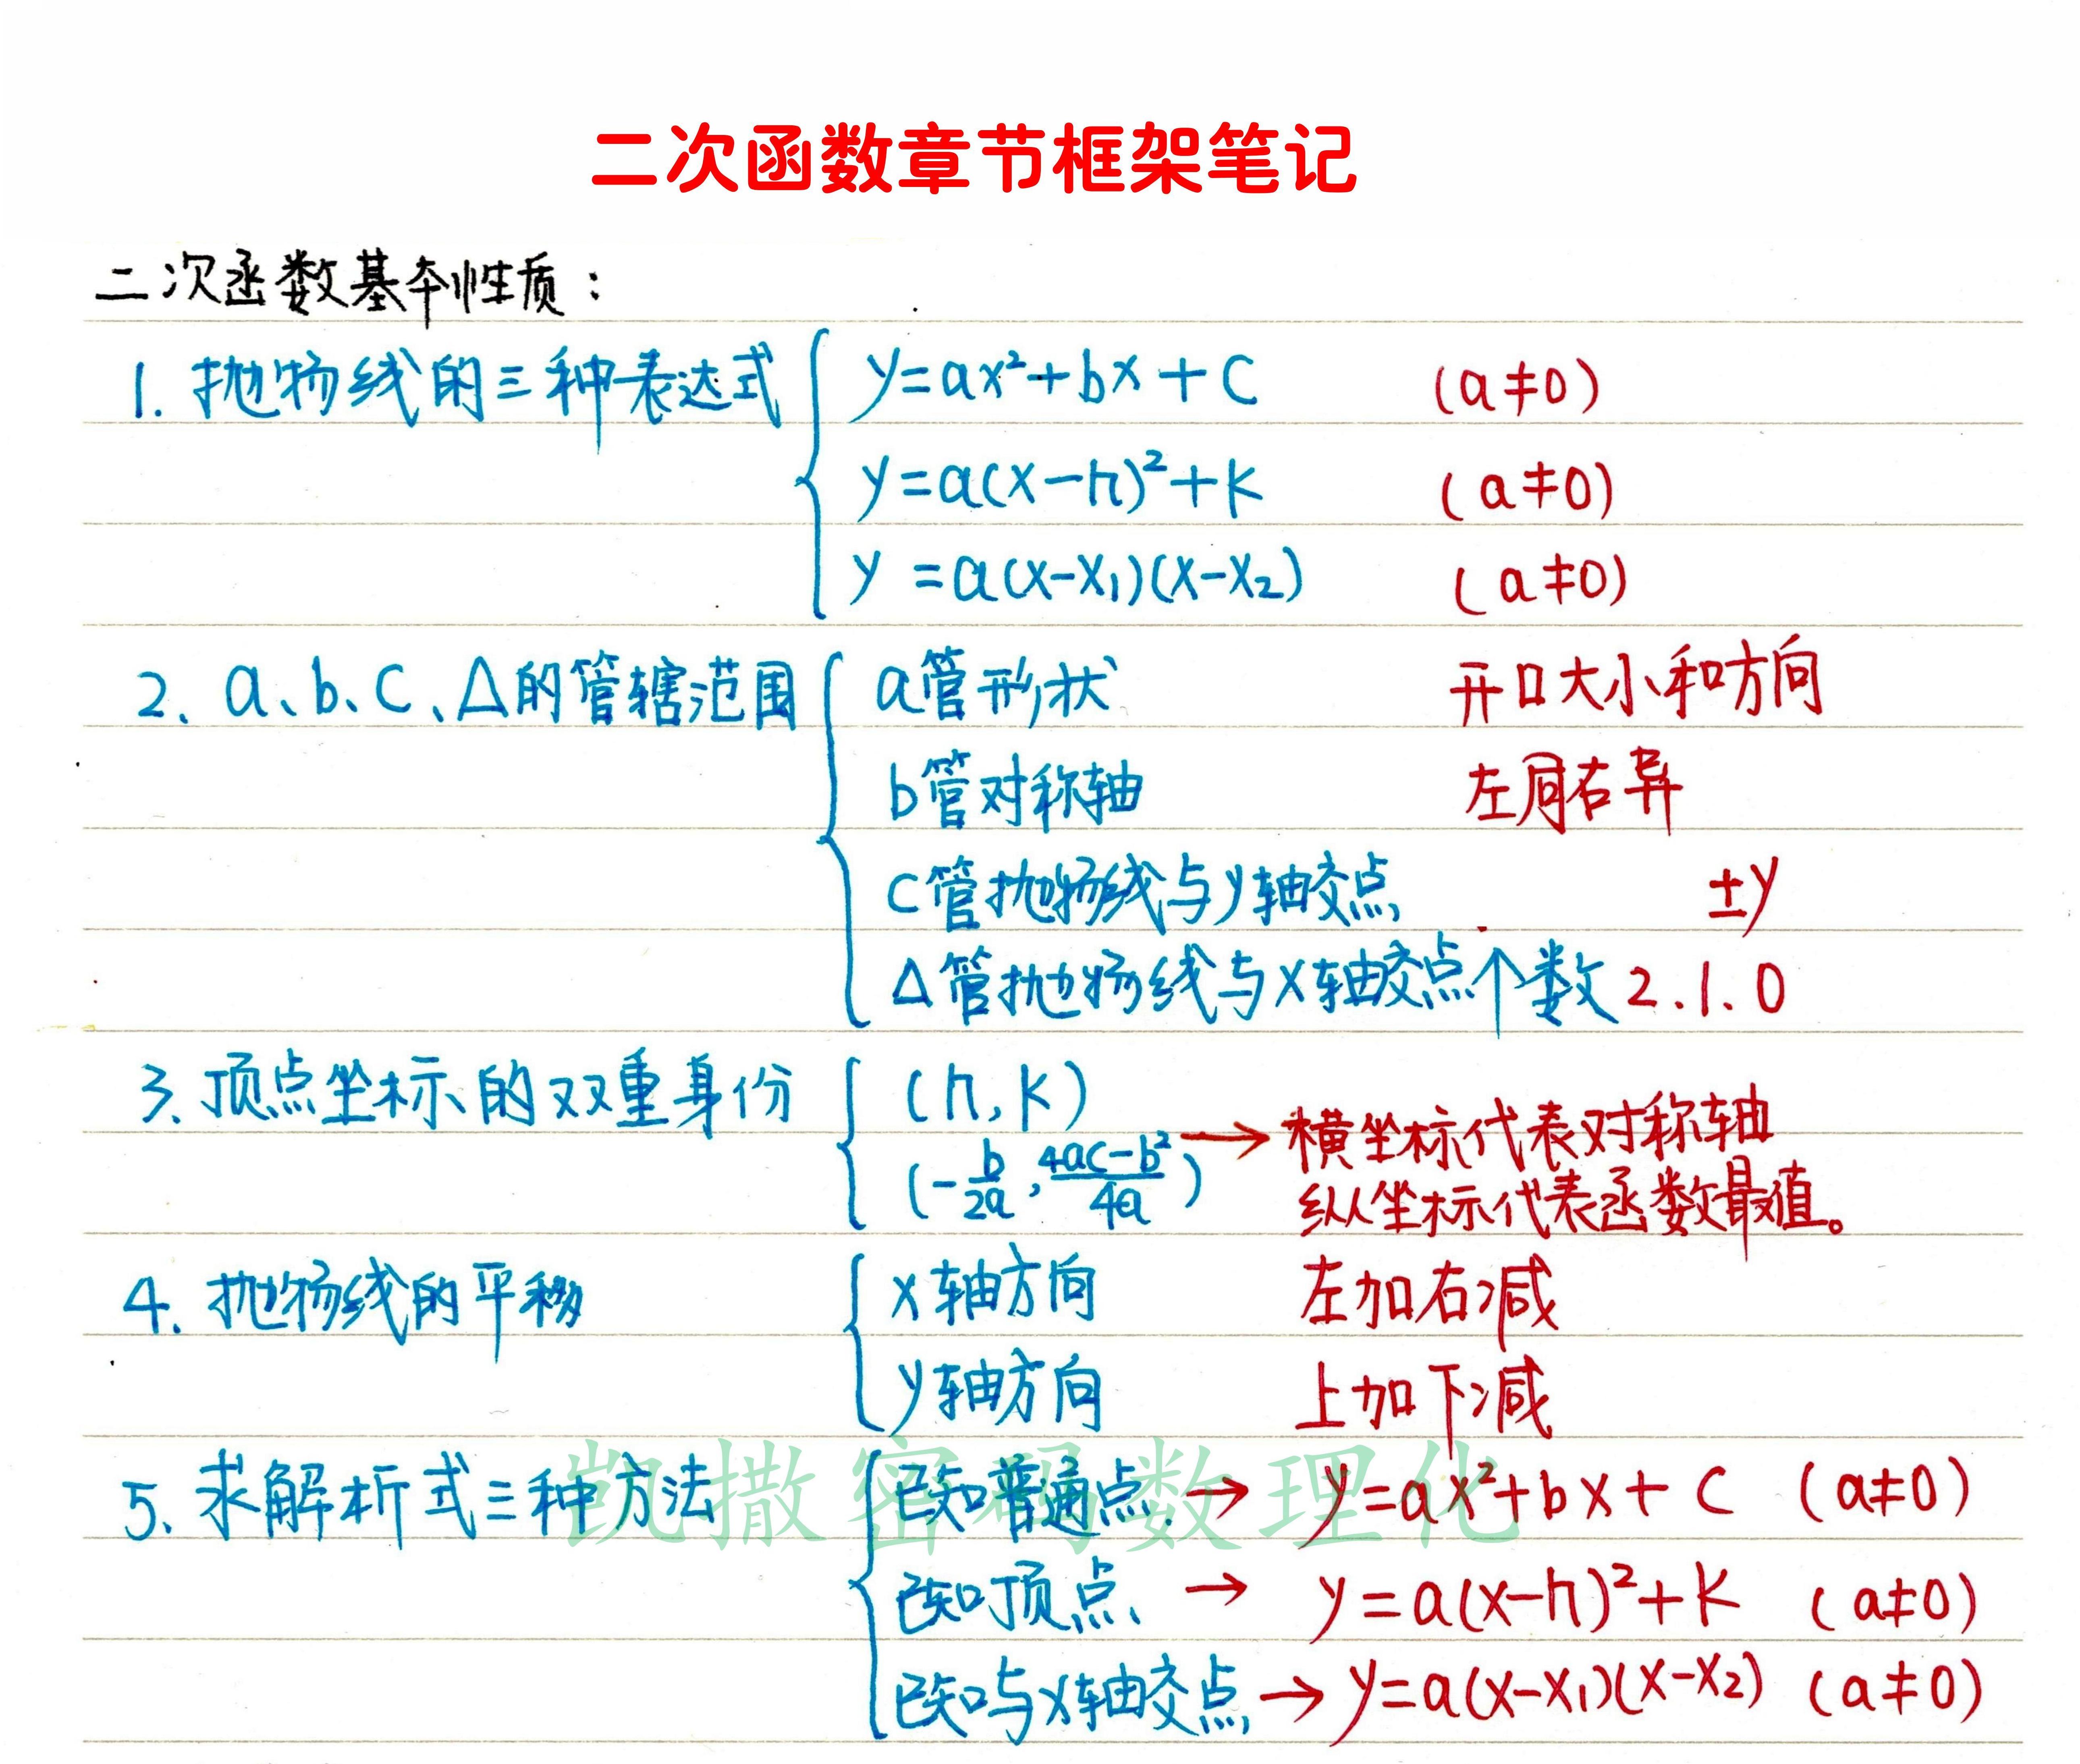 二次函数章节框架笔记
二次函数基本性质：
1. 抛物线的三种表达式 { y=ax²+bx+c (a≠0)
y=a(x-h)²+k (a≠0)
y=a(x-x₁)(x-x₂) (a≠0)
2、a、b、c、△的管辖范围 { a管形状 开口大小和方向
b管对称轴 左同右异
c管抛物线与y轴交点 ±y
△管抛物线与x轴交点个数 2.1.0
3、顶点坐标的双重身份 { (h,k)
(-b/2a, 4ac-b²/4a) → 横坐标代表对称轴
纵坐标代表函数最值。
4、抛物线的平移 { x轴方向 左加右减
y轴方向 上加下减
5、求解析式三种方法 { 已知普通点 → y=ax²+bx+c (a≠0)
凯撒密码数理化
已知顶点 → y=a(x-h)²+k (a≠0)
已知与x轴交点 → y=a(x-x₁)(x-x₂) (a≠0)